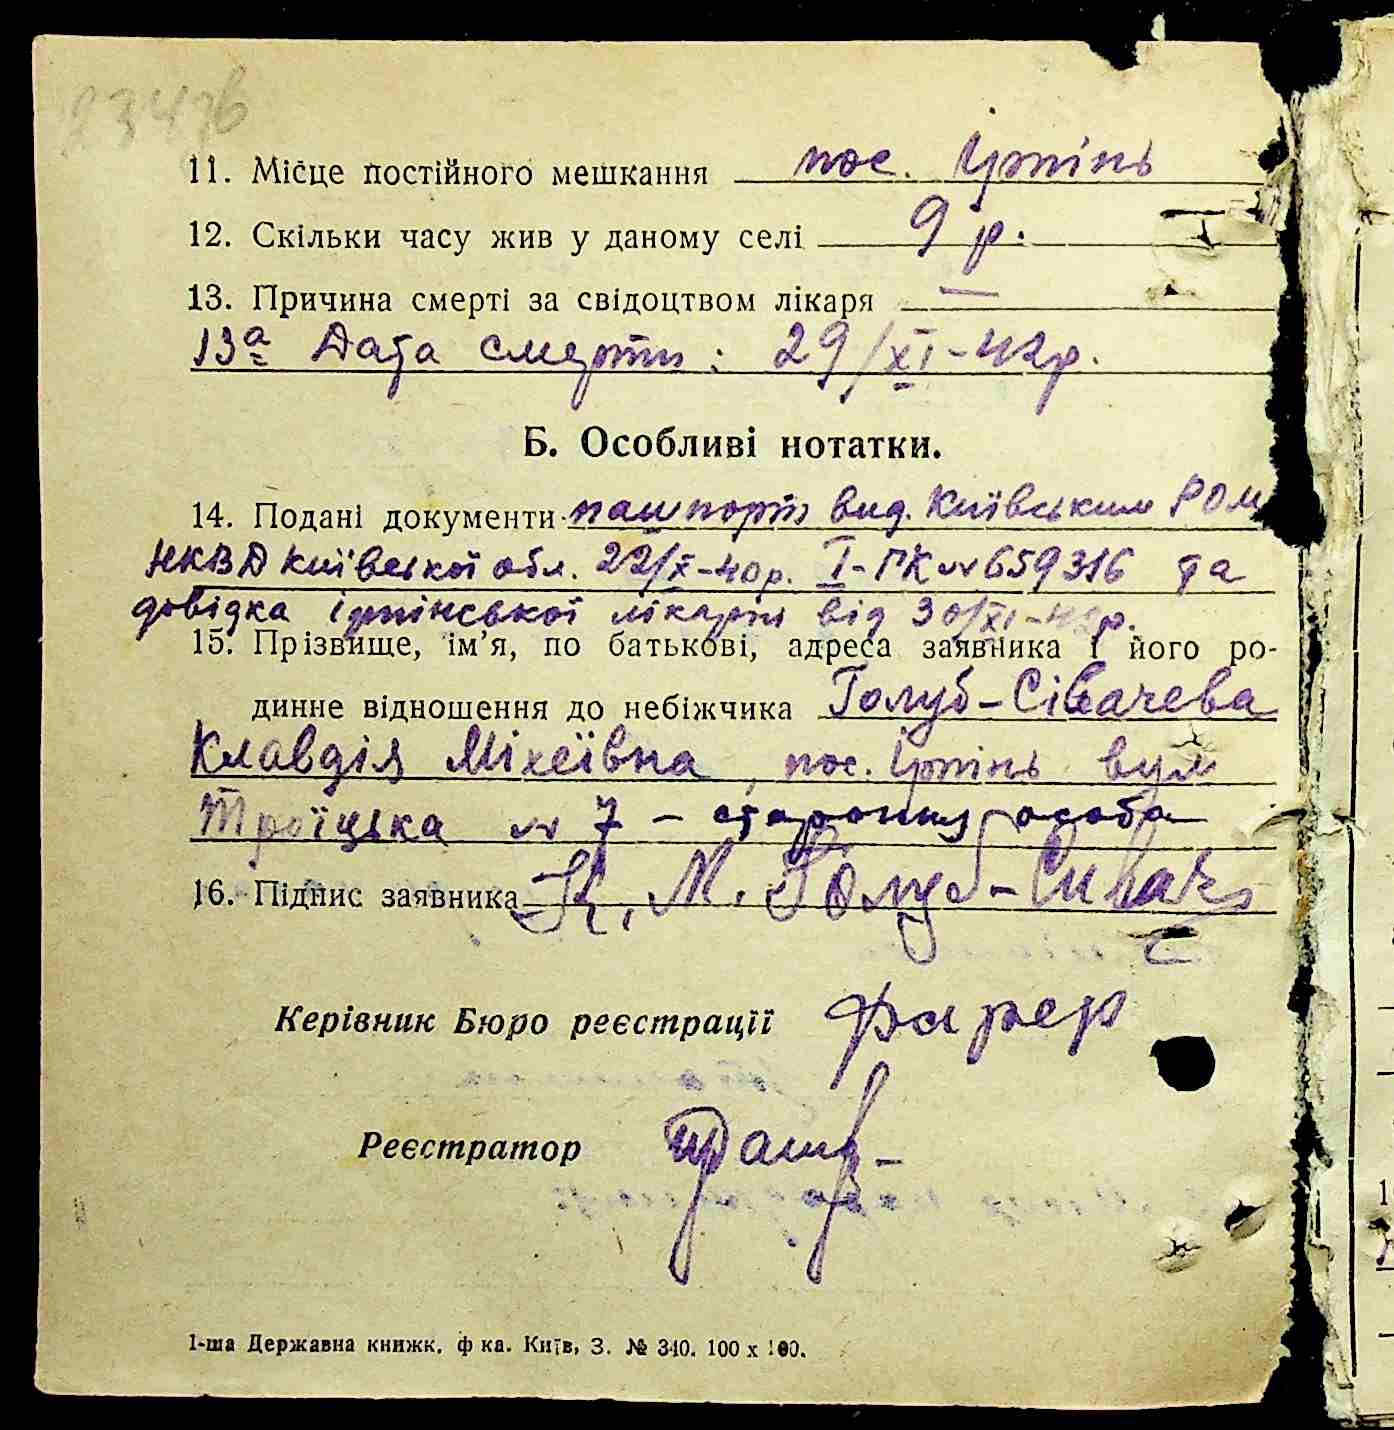 23476
11. Місце постійного мешкання пос. Ірпінь
12. Скільки часу жив у даному селі 9 р.
13. Причина смерті за свідоцтвом лікаря —
13а Дата смерти: 29/XI-42р.
Б. Особливі нотатки.
14. Подані документи пашпорт вид. Київським РОМ
НКВД Київської обл. 22/X-40р. І-ГК № 659316 та
довідка ірпінської лікарні від 30/XI-42р.
15. Прізвище, ім’я, по батькові, адреса заявника і його ро-
динне відношення до небіжчика Голуб-Сівачева
Клавдія Міхеївна, пос. Ірпінь вул
Троїцька № 7 – стороння особа
16. Підпис заявника К. М. Голуб-Сивач
Керівник Бюро реєстрації
Реєстратор
1-ша Державна книжк. ф ка. Київ, З. № 340. 100 х 100.